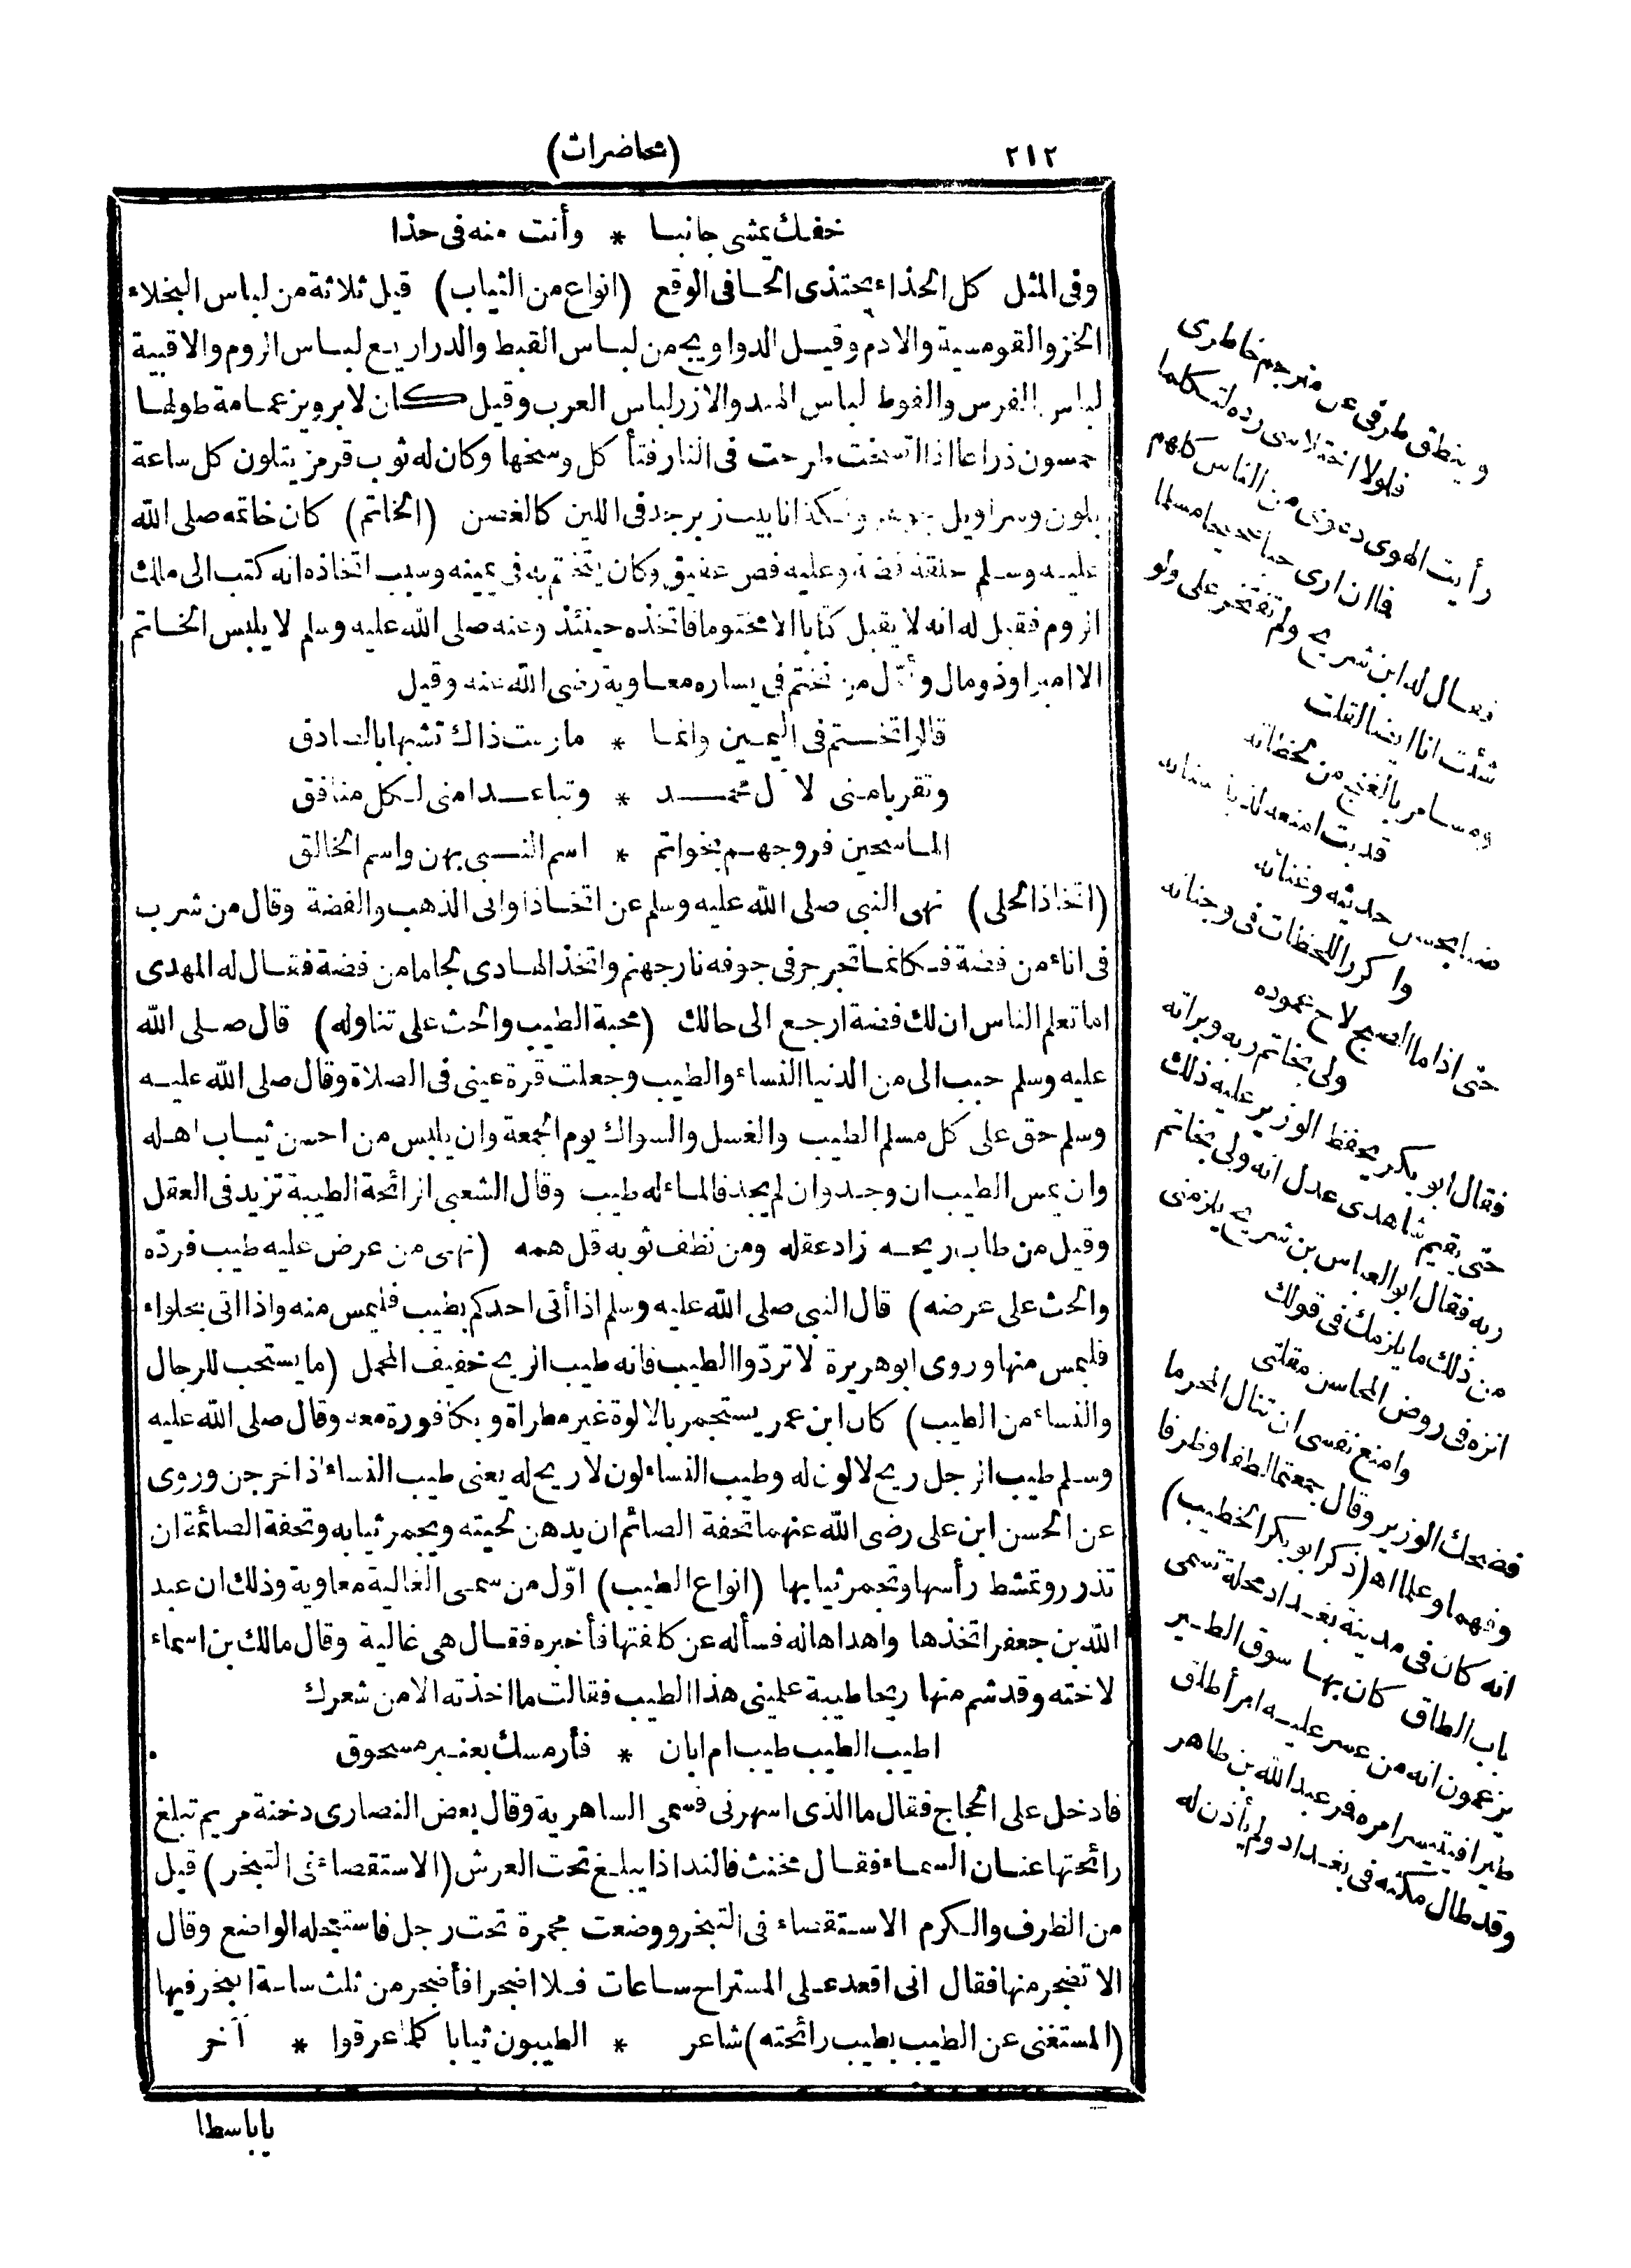 ٢١٢
(محاضرات)
خفك يمشى جانبا * وأنت منه فى حذا
وفى المثل كل الحذاء يحتذى الحافى الوقع (انواع من الثياب) قيل ثلاثة من لباس البخلاء
الخز والقومسية والادم وقيل الدواويج من لباس القبط والدراريع لباس الروم والاقبية
لباس الفرس والفوط لباس الهند والازر لباس العرب وقيل كان لابرويز عمامة طولها
خمسون ذراعا اذا اتسخت طرحت فى النار فتأكل وسخها وكان له ثوب قرمز يتلون كل ساعة
بلون وسراويل وتكة انابيب زبرجد فى اللين كالغصن (الخاتم) كان خاتمه صلى الله
عليه وسلم حلقة فضة وعليه فص عقيق وكان يتختم به فى يمينه وسبب اتخاذه انه كتب الى مالك
الروم فقيل له انه لا يقبل كتابا الا مختوما فاتخذه حينئذ وعنه صلى الله عليه وسلم لا يلبس الخاتم
الا امير او ذو مال وأول من تختم فى يساره معاوية رضى الله عنه وقيل
قالوا تختم فى اليمين وانما * مارست ذاك تشبها بالصادق
وتقربا منى لآل محمد * وتباعدا منى لكل منافق
الماسحين فروجهم بخواتم * اسم النبى بهن واسم الخالق
(اتخاذ الحلى) نهى النبى صلى الله عليه وسلم عن اتخاذ اوانى الذهب والفضة وقال من شرب
فى اناء من فضة فكانما تجرجر فى جوفه نار جهنم واتخذ الهادى لجاما من فضة فقال له المهدى
اما تعلم الناس ان لك فضة ارجع الى حالك (محبة الطيب والحث على تناوله) قال صلى الله
عليه وسلم حبب الى من الدنيا النساء والطيب وجعلت قرة عينى فى الصلاة وقال صلى الله عليه
وسلم حق على كل مسلم الطيب والغسل والسواك يوم الجمعة وان يلبس من احسن ثياب اهله
وان يمس الطيب ان وجد وان لم يجد فالماء له طيب وقال الشعبى الرائحة الطيبة تزيد فى العقل
وقيل من طاب ريحه زاد عقله ومن نظف ثوبه قل همه (نهى من عرض عليه طيب فردّه
والحث على عرضه) قال النبى صلى الله عليه وسلم اذا أتى احدكم بطيب فليمس منه واذا اتى بحلواء
فليمس منها وروى ابو هريرة لا تردّوا الطيب فانه طيب الريح خفيف المحمل (ما يستحب للرجال
والنساء من الطيب) كان ابن عمر يستجمر بالالوة غير مطراة وبكافورة معه وقال صلى الله عليه
وسلم طيب الرجل ريح لا لون له وطيب النساء لون لا ريح له يعنى طيب النساء اذا خرجن وروى
عن الحسن ابن على رضى الله عنهما تحفة الصائم ان يدهن لحيته ويجمر ثيابه وتحفة الصائمة ان
تذرر وتمشط رأسها وتجمر ثيابها (انواع الطيب) اوّل من سمى الغالية معاوية وذلك ان عبد
الله بن جعفر اتخذها واهداها له فسأله عن كلفتها فأخبره فقال هى غالية وقال مالك بن اسماء
لاخته وقد شم منها ريحا طيبة علمينى هذا الطيب فقالت ما اخذته الا من شعرك
اطيب الطيب طيب ام ابان * فأر مسك بعنبر مسحوق
فادخل على الحجاج فقال ما الذى اسهرنى فسمى الساهرية وقال بعض النصارى دخنة مريم تبلغ
رائحتها عنان السماء فقال مخنث فالند اذا يبلغ تحت العرش (الاستقصاء فى التبخر) قيل
من الظرف والكرم الاستقصاء فى التبخر ووضعت مجمرة تحت رجل فاستعجله الواضع وقال
الا تضجر منها فقال انى اقعد على المستراح ساعات فلا اضجر افأضجر من ثلث ساعة ابخر فيها
(المستغنى عن الطيب بطيب رائحته) شاعر * الطيبون ثيابا كلما عرقوا * آخر
ياباسطا
وينطق طرفى عن مترجم خاطرى
فلولا اختلاسى رده لتكلما
رأيت الهوى دعوى من الناس كلهم
فما ان ارى حبا صحيحا مسلما
فقال له ابن شريح ولم تفتخر على ولو
شئت انا ايضا لقلت
ومسامر بالغنج من لحظاته
قد بت امنعه لذيذ سناته
ضنا بحسن حديثه وغنائه
واكرر اللحظات فى وجناته
حتى اذا ما الصبح لاح عموده
ولى بخاتم ربه وبراته
فقال ابو بكر يحفظ الوزير عليه ذلك
حتى يقيم شاهدى عدل انه ولى بخاتم
ربه فقال ابو العباس بن شريح يلزمنى
من ذلك ما يلزمك فى قولك
انزه فى روض المحاسن مقلتى
وامنع نفسى ان تنال المحرما
فضحك الوزير وقال جمعتما لطفا وظرفا
وفهما وعلما اه (ذكر ابو بكر الخطيب)
انه كان فى مدينة بغداد محلة تسمى
باب الطاق كان بها سوق الطير
يزعمون انه من عسر عليه امر أطلق
طيرا فيتيسر امره فمر عبد الله بن طاهر
وقد طال مكثه فى بغداد ولم يأذن له